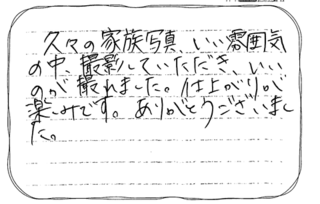 久々の家族写真、いい雰囲気
の中、撮影していただき、いい
のが撮れました。仕上がりが
楽しみです。ありがとうございまし
た。